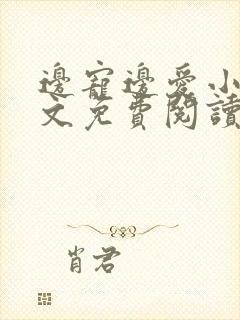 邊寵邊愛小
文免費閱讀
肖君